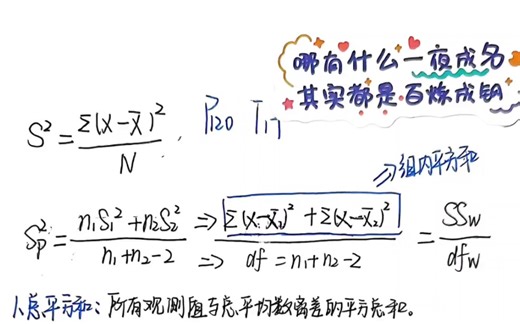 哪有什么一夜成名
其实都是百炼成钢
S² = Σ(X-X̄)² / N . P120 T17
⇒组内平方和
Sp² = (n₁S₁²+n₂S₂²) / (n₁+n₂-2) ⇒ Σ(X-X̄₁)² + Σ(X-X̄₂)² / ⇒ df = n₁+n₂-2 = SSw / dfw
1、总平方和：所有观测值与总平均数离差的平方总和。